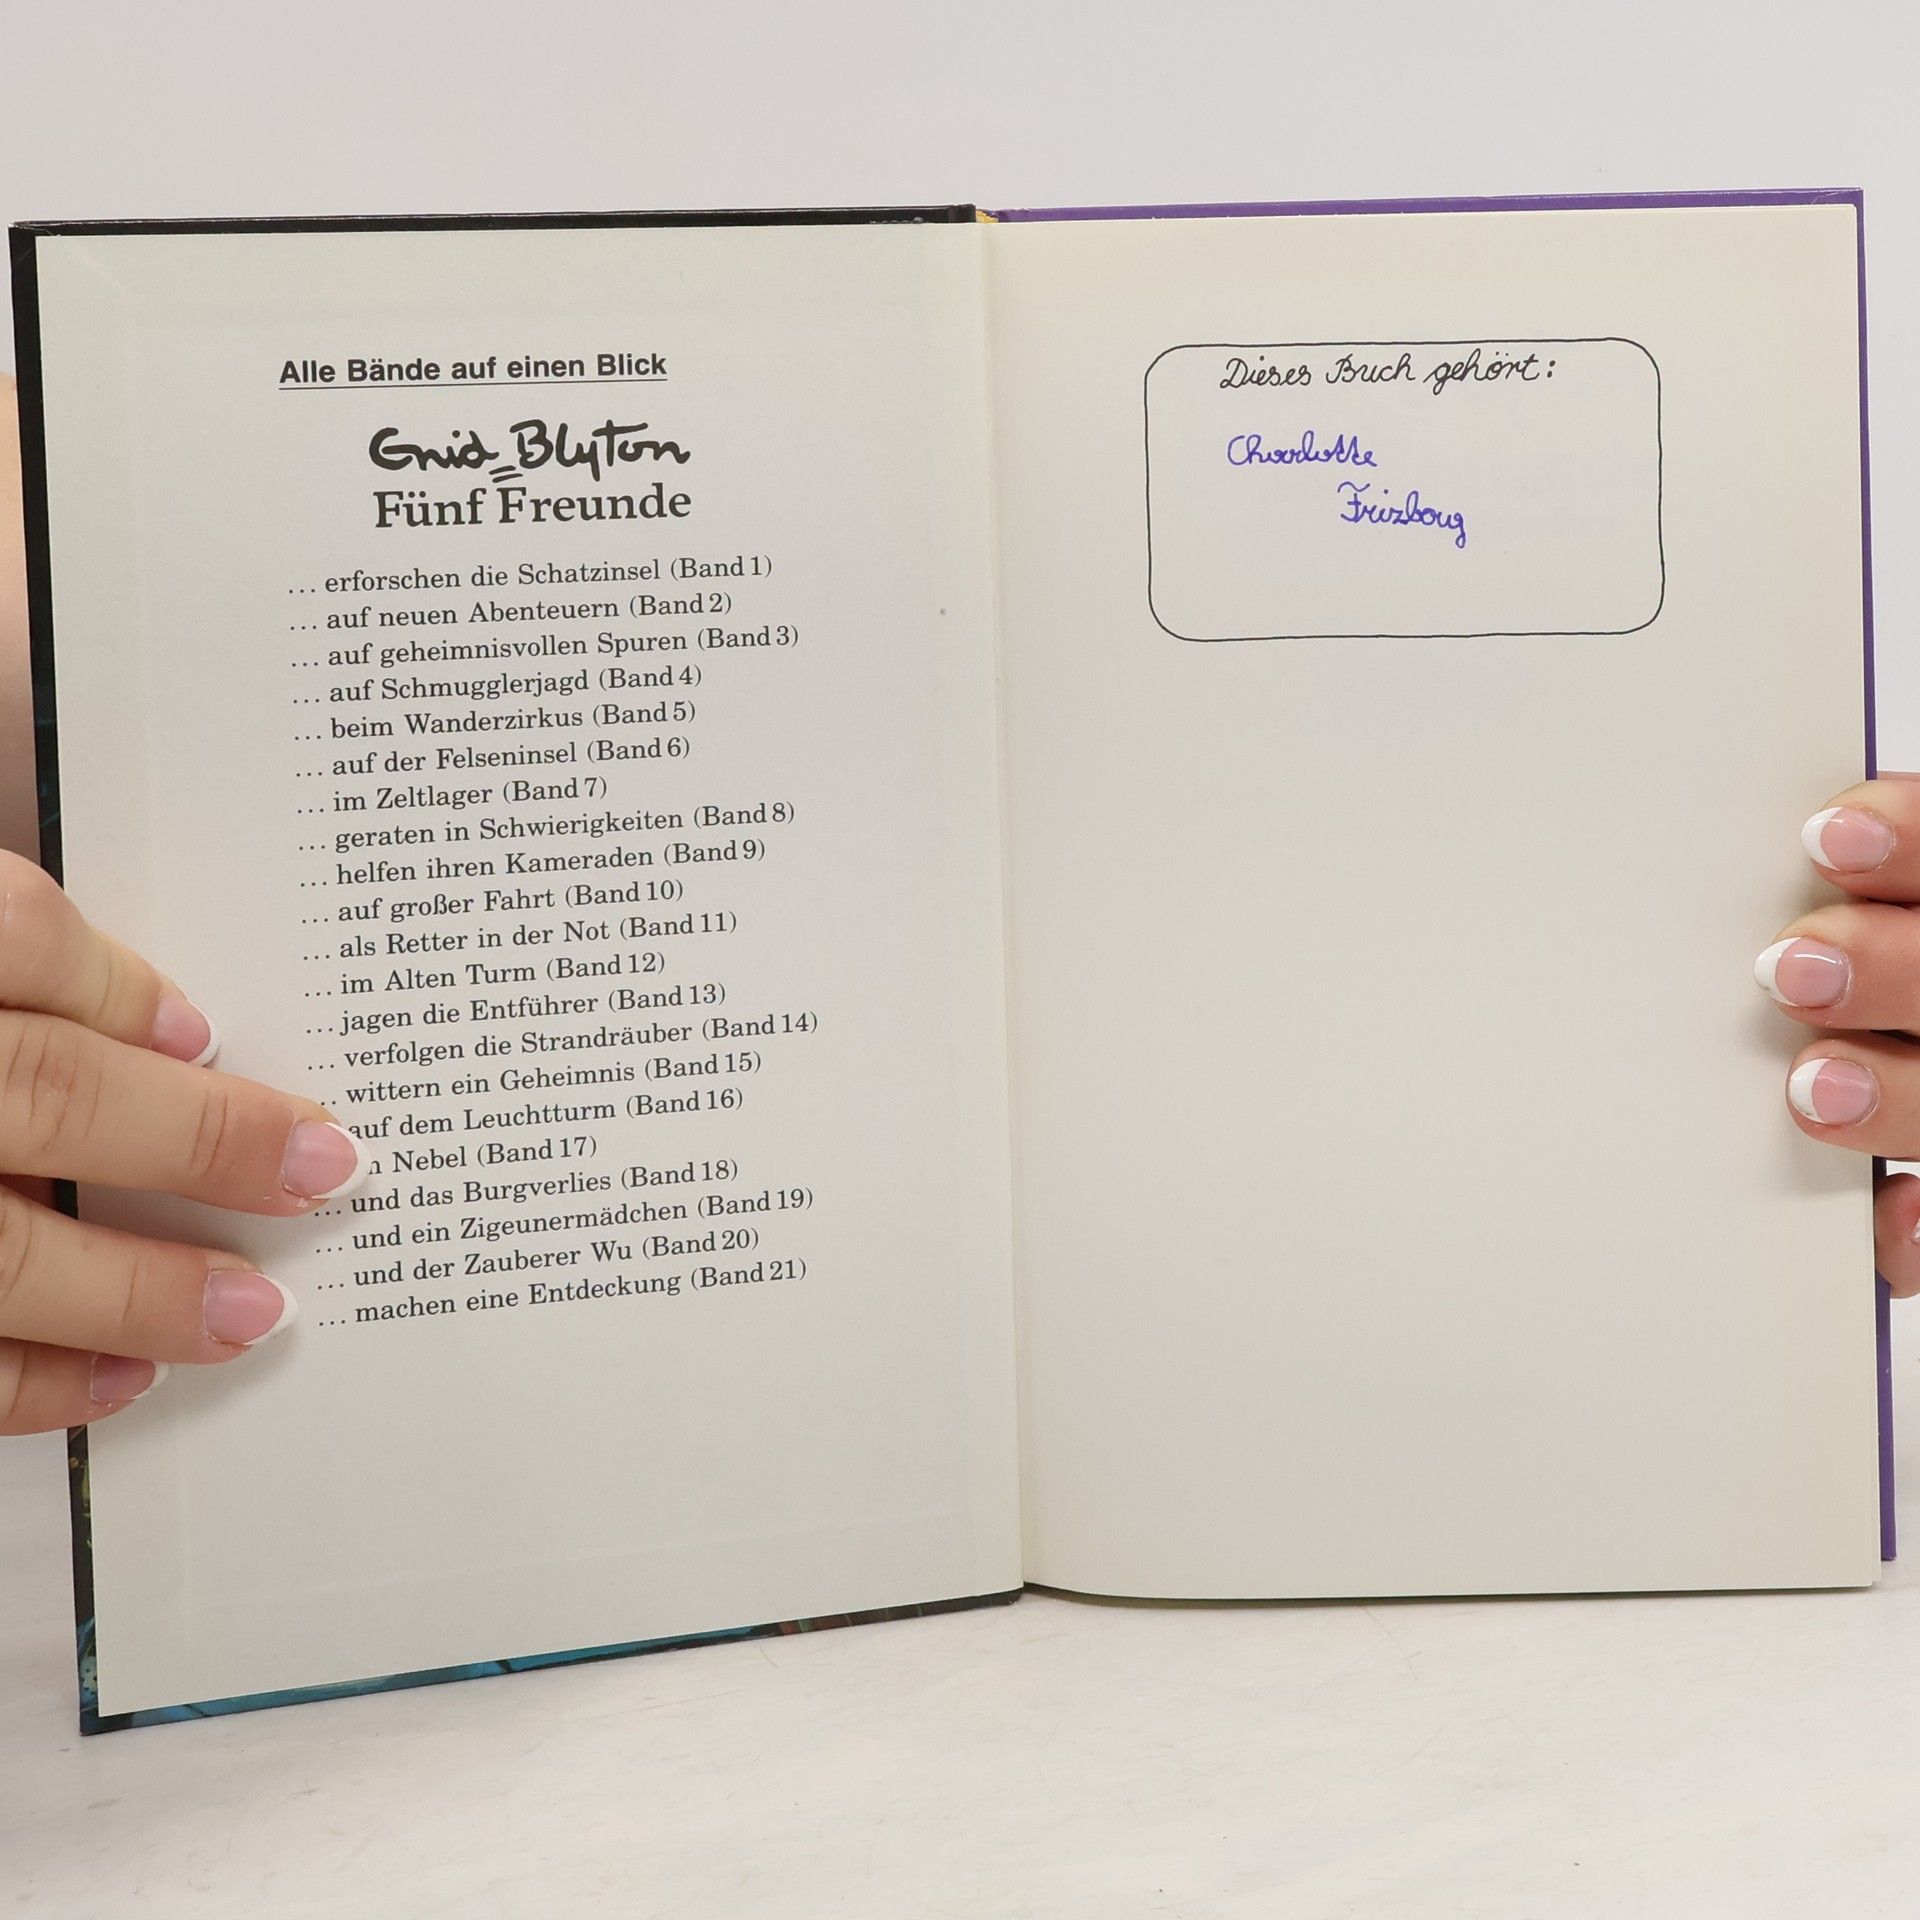 Alle Bände auf einen Blick
Enid Blyton
Fünf Freunde
... erforschen die Schatzinsel (Band 1)
... auf neuen Abenteuern (Band 2)
... auf geheimnisvollen Spuren (Band 3)
... auf Schmugglerjagd (Band 4)
... beim Wanderzirkus (Band 5)
... auf der Felseninsel (Band 6)
... im Zeltlager (Band 7)
... geraten in Schwierigkeiten (Band 8)
... helfen ihren Kameraden (Band 9)
... auf großer Fahrt (Band 10)
... als Retter in der Not (Band 11)
... im Alten Turm (Band 12)
... jagen die Entführer (Band 13)
... verfolgen die Strandräuber (Band 14)
.. wittern ein Geheimnis (Band 15)
auf dem Leuchtturm (Band 16)
Nebel (Band 17)
... und das Burgverlies (Band 18)
... und ein Zigeunermädchen (Band 19)
... und der Zauberer Wu (Band 20)
... machen eine Entdeckung (Band 21)
Dieses Buch gehört:
Charlotte